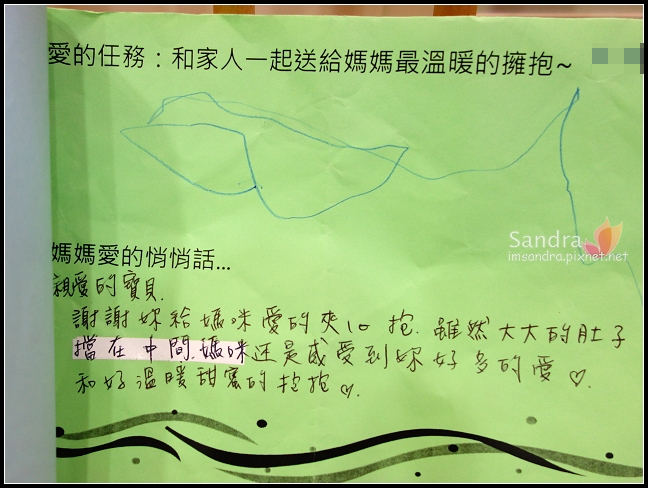 愛的任務：和家人一起送給媽媽最溫暖的擁抱~
Sandra
imsandra.pixnet.net
媽媽愛的悄悄話...
親愛的寶貝.
謝謝妳給媽咪愛的夾心抱. 雖然大大的肚子
擋在中間.媽咪还是感受到妳好多的愛♡.
和好溫暖甜蜜的抱抱♡.